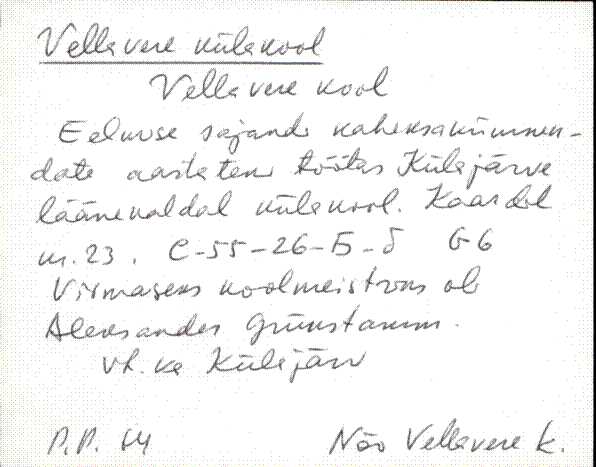 Vellavere külakool
Vellavere kool
Eelmise sajandi kaheksakümnen-
date aastateni töötas Külajärve
läänekaldal külakool. Kaardil
nr. 23. C-55-26-Б-б G6
Viimaseks koolmeistriks oli
Aleksander Grünstamm.
vt. ka Külajärv
P.P. 64
Nõo Vellavere k.